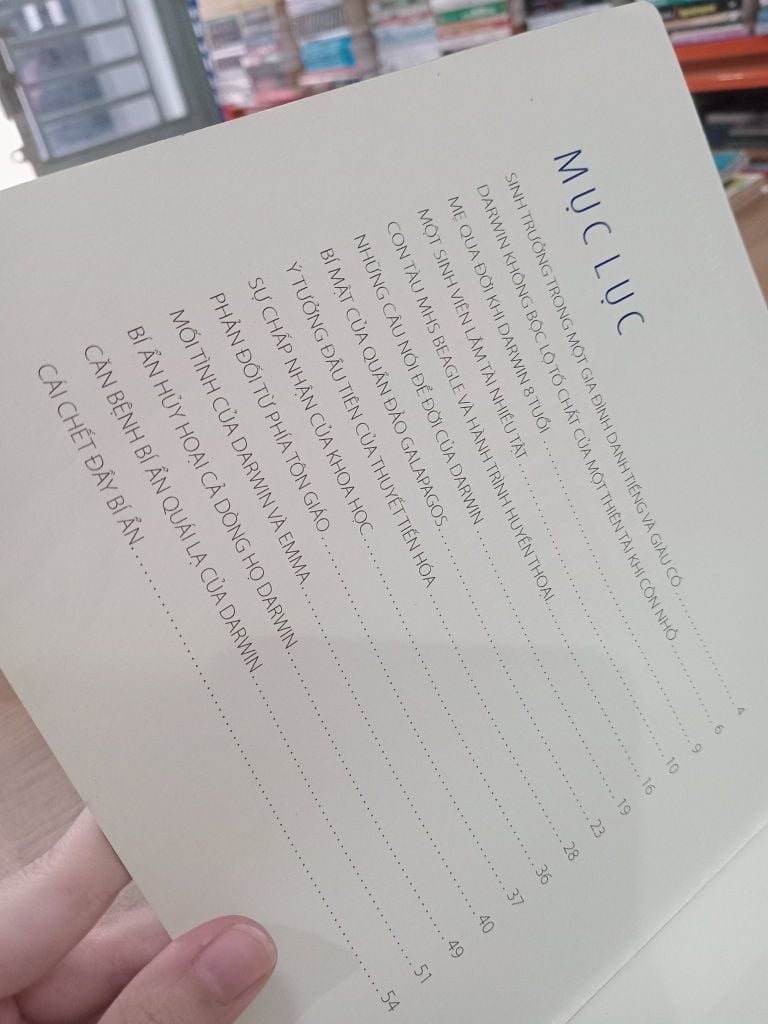 MỤC LỤC
SINH TRƯỞNG TRONG MỘT GIA ĐÌNH DANH TIẾNG VÀ GIÀU CÓ .................... 4
DARWIN KHÔNG BỘC LỘ TỐ CHẤT CỦA MỘT THIÊN TÀI KHI CÒN NHỎ .............. 6
MẸ QUA ĐỜI KHI DARWIN 8 TUỔI .................... 9
MỘT SINH VIÊN LẮM TÀI NHIỀU TẬT .................... 10
CON TÀU MHS BEAGLE VÀ HÀNH TRÌNH HUYỀN THOẠI .................... 16
NHỮNG CÂU NÓI ĐỂ ĐỜI CỦA DARWIN .................... 19
BÍ MẬT CỦA QUẦN ĐẢO GALAPAGOS .................... 23
Ý TƯỞNG ĐẦU TIÊN CỦA THUYẾT TIẾN HÓA .................... 28
SỰ CHẤP NHẬN CỦA KHOA HỌC .................... 36
PHẢN ĐỐI TỪ PHÍA TÔN GIÁO .................... 37
MỐI TÌNH CỦA DARWIN VÀ EMMA .................... 40
BÍ ẨN HỦY HOẠI CẢ DÒNG HỌ DARWIN .................... 49
CĂN BỆNH BÍ ẨN QUÁI LẠ CỦA DARWIN .................... 51
CÁI CHẾT ĐẦY BÍ ẨN .................... 54